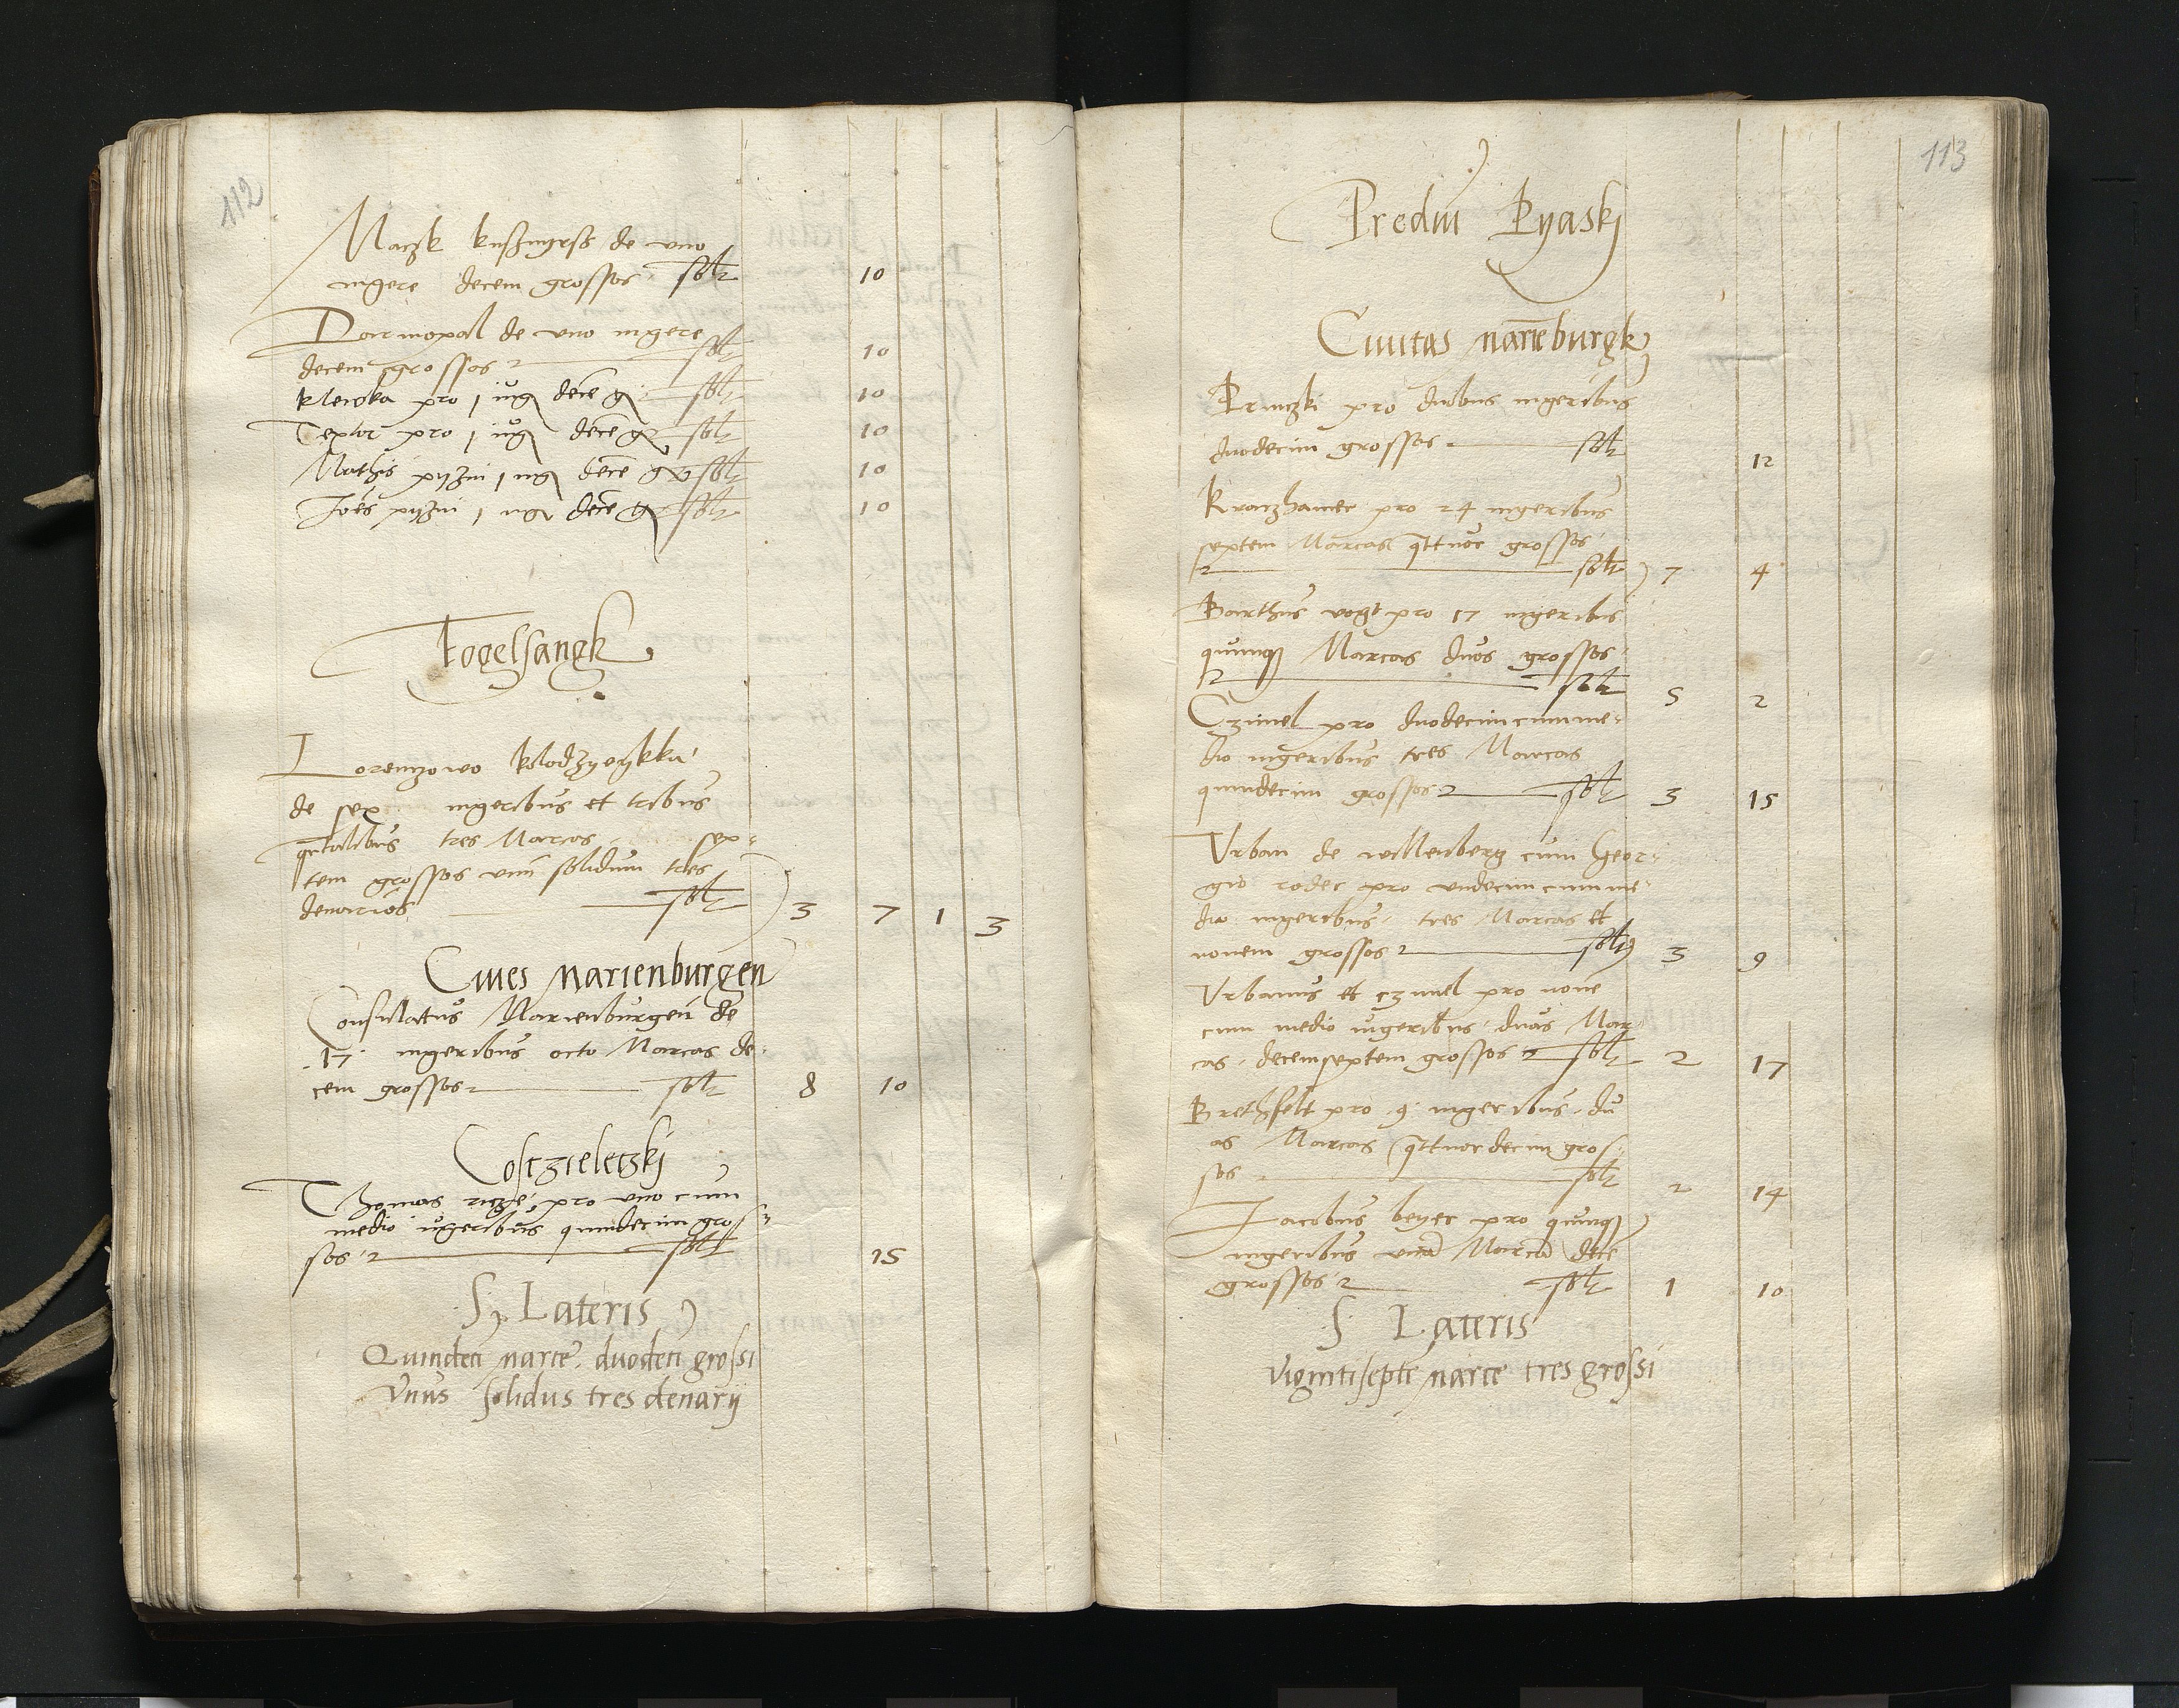 112
Maczk de uno
iugere decem grossos solt 10
de uno iugere
decem grossos solt 10
klewka pro 1 iug decē g solt 10
Textor pro 1 iug decē g solt 10
Mathis 1 iug decē g solt 10
Joēs 1 iug decē g solt 10
Fogelsangk
Lorenczowo
de sex iugeribus et tribus
qrtalibus tres Marcas sep-
tem grossos unū solidum tres
denarios solt 3 7 1 3
Ciues Marienburgen
Consulatus Marienburgeñ de
.17. iugeribus octo Marcas de-
cem grossos solt 8 10
Costzieletzkj
Thomas pro uno cum
medio iugeribus quindecim gros-
sos solt 15
S Lateris
Quindeci marce. duodeci grossi
Vnus solidus tres denarij
113
Prediū Pyaskj
Ciuitas mariēburgk
pro duobus iugeribus
duodecim grossos solt 12
pro 24 iugeribus
septem Marcas qttuor grossos
solt 7 4
Barthus vogt pro 17 iugeribus
quinque Marcas duos grossos
solt 5 2
Czimel pro duodecim cum me-
dio iugeribus tres Marcas
quindecim grossos solt 3 15
Vrban de willenberg cum Geor-
gio roder pro undecim cum me-
dio iugeribus tres Marcas et
nonem grossos solt 3 9
Vrbanus et czimel pro nouē
cum medio iugeribus duas Mar-
cas decemseptem grossos solt 2 17
Brethfelt pro .9. iugeribus du
as Marcas qttuordecim gros-
sos solt 2 14
Jacobus beyer pro quinque
iugeribus unā Marcā decē
grossos solt 1 10
S Lateris
vigintiseptē marce tres grossi